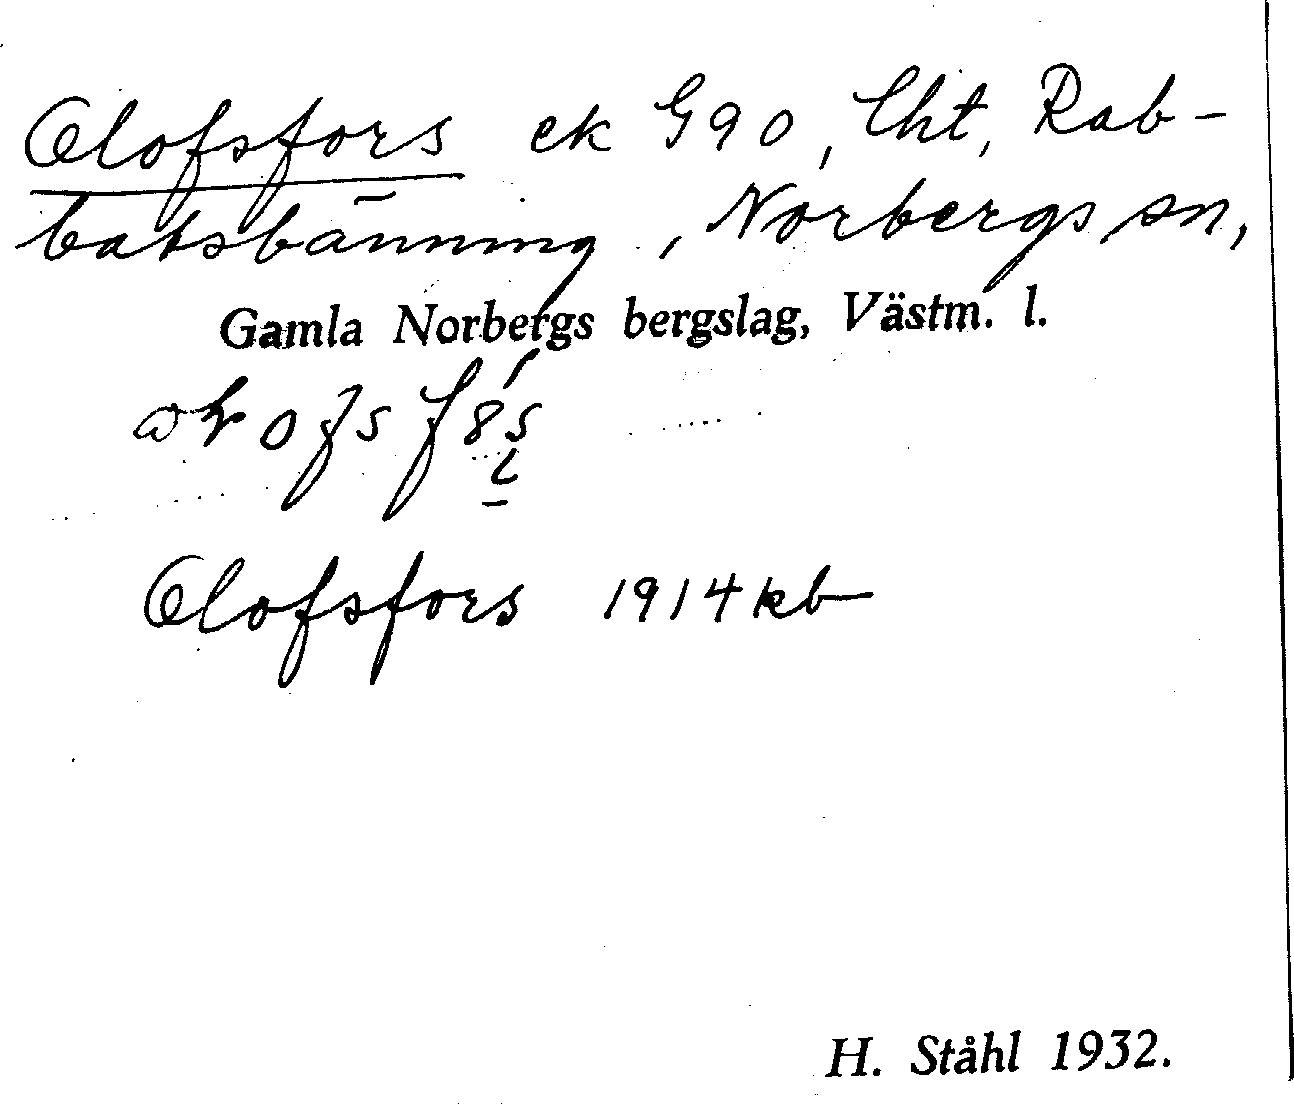 Olofsfors ek G90, lht, Rab-
batsbänning, Norbergs sn,
Gamla Norbergs bergslag, Västm. l.
Olofsfors 1914 kb
H. Ståhl 1932.